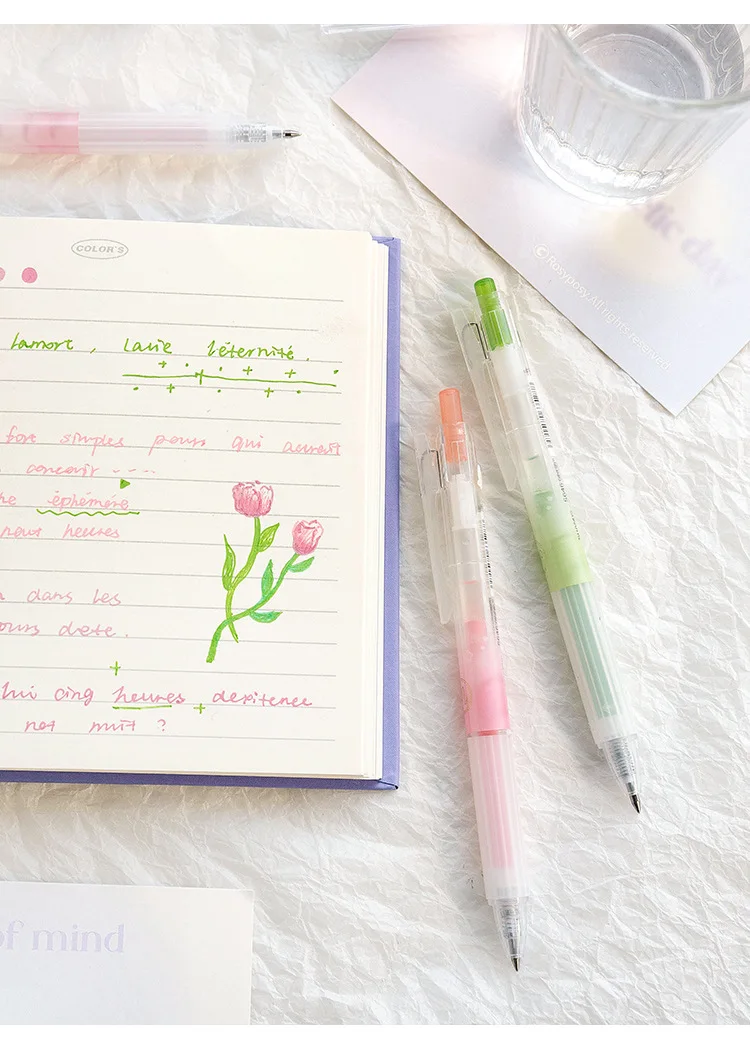 COLOR'S
lamort, lavie l'éternité.
fort simples pour qui aurait
concevir ----
he éphémére
pour heures
dans les
ours d'ete.
hui cinq heures dexitence
not nuit ?
of mind
tic day
© Rosyposy.All rights reserved.